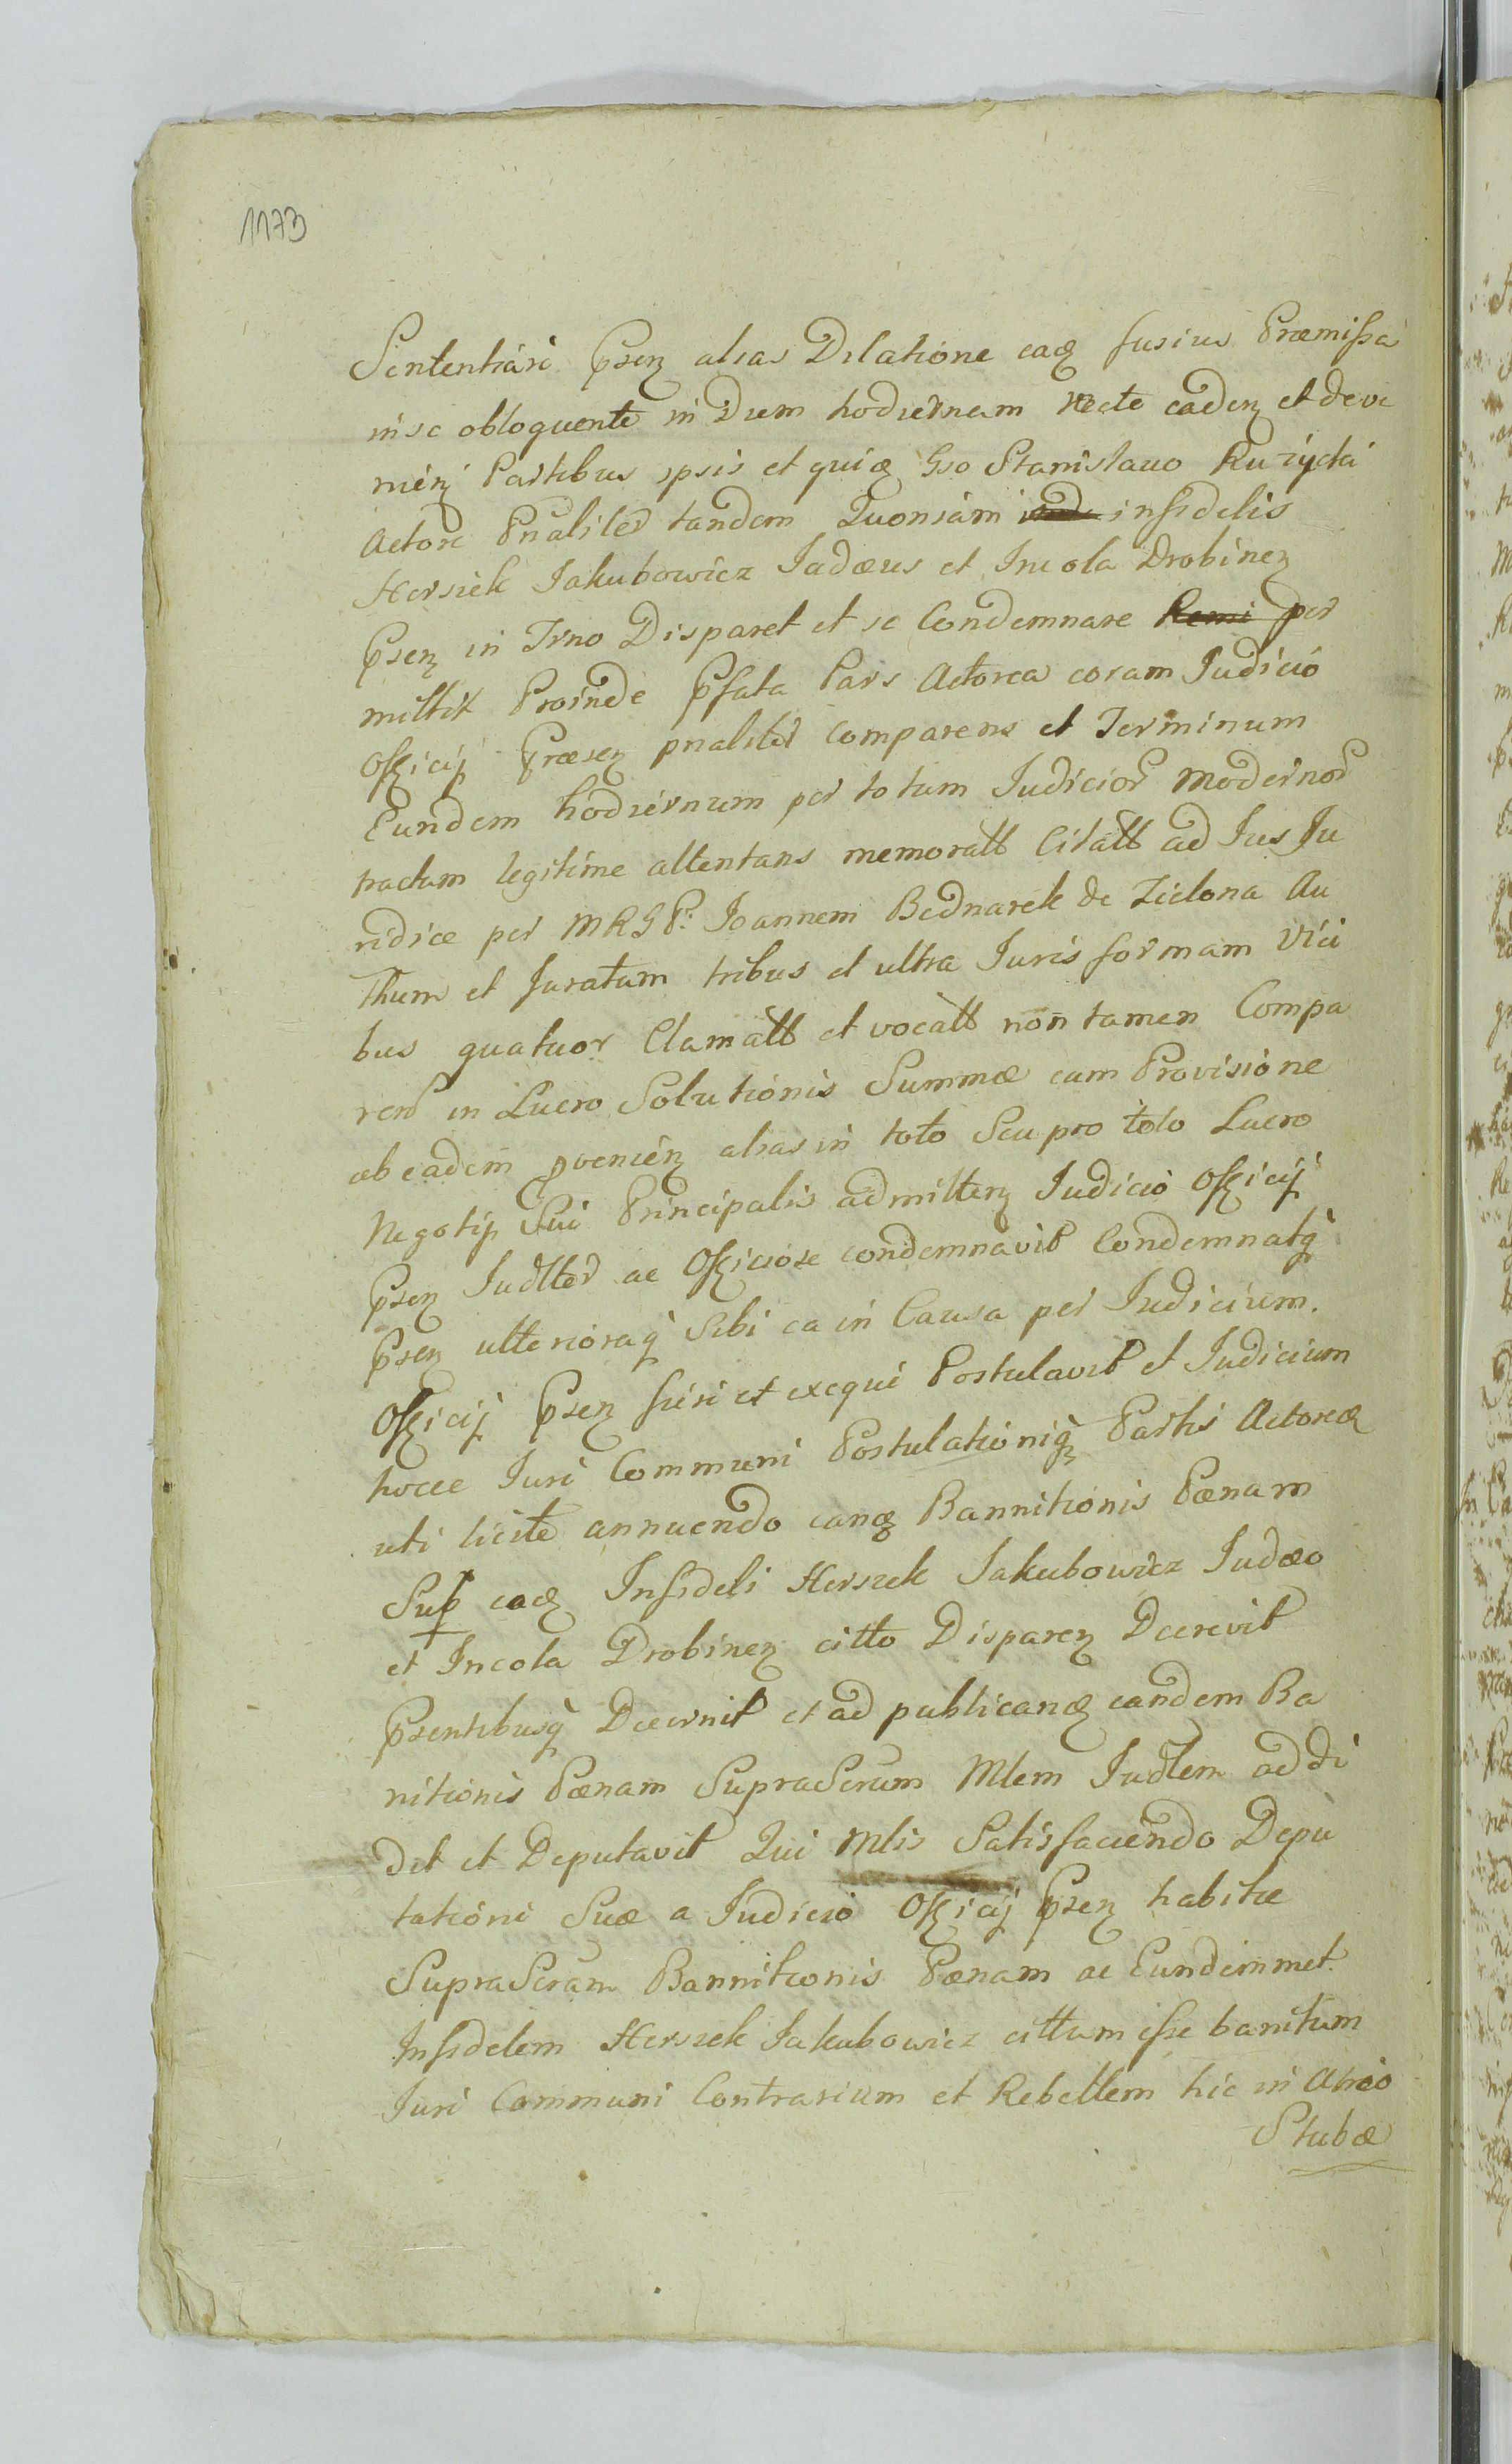 1173
Sententiari Prsen alias Dilatione eaq fusius Præmissa
inse obloquente in Diem hodiernam recte caden et deve
nien Partibus ipsis et quiq Gso Stanislauo Kuzycki
Actore Pnaliter tandem Quoniam infidelis
Herszek Jakubowicz Judæus et Incola Drobinen
Prsen in Trno Disparet et se Condemnare per
mittit Proinde Pfata Pars Actorea coram Judicio
Officij Præsen pnaliter comparens et Terminum
Eundem hodiernum per totum Judicior modernor
tractum legitime attentans memoratt Citatt ad Jus Ju
ridice per MRGP: Joannem Bednarek de Zielona Au
Thum et Juratum tribus et ultra Juris formam Vici
bus quatuor Clamatt et vocatt non tamen Compa
ren in Lucro Solutionis Summæ cum Provisione
ab eadem pvenien alias in toto Seu pro toto Lucro
Negotij Sui Principalis admitten Judicio Officij
Prsen Judtter ac Officiose condemnavit Condemnatq
Prsen ulterioraq Sibi ea in Causa per Judicium.
Officij Prsen fieri et exequi Postulavit et Judicium
hocce Juri Communi Postulationiq Partis Actoreæ
uti licite annuendo eanq Bannitionis Pænam
Sup eaq Infideli Herszek Jakubowicz Judæo
et Incola Drobinen citto Disparen Decrevit
Prsentibusq Decernit et ad publicanq eandem Ba
nitionis Pænam SupraScrum Mlem Judlem addi
dit et Deputavit Qui Mlis Satisfaciendo Depu
tationi Suæ a Judicio Officij Prsen habitæ
SupraScram Bannitionis Pænam ac Eundemmet
Infidelem Herszek Jakubowicz cittum esse banitum
Juri Communi Contrarium et Rebellem hic in Atrio
Stubæ